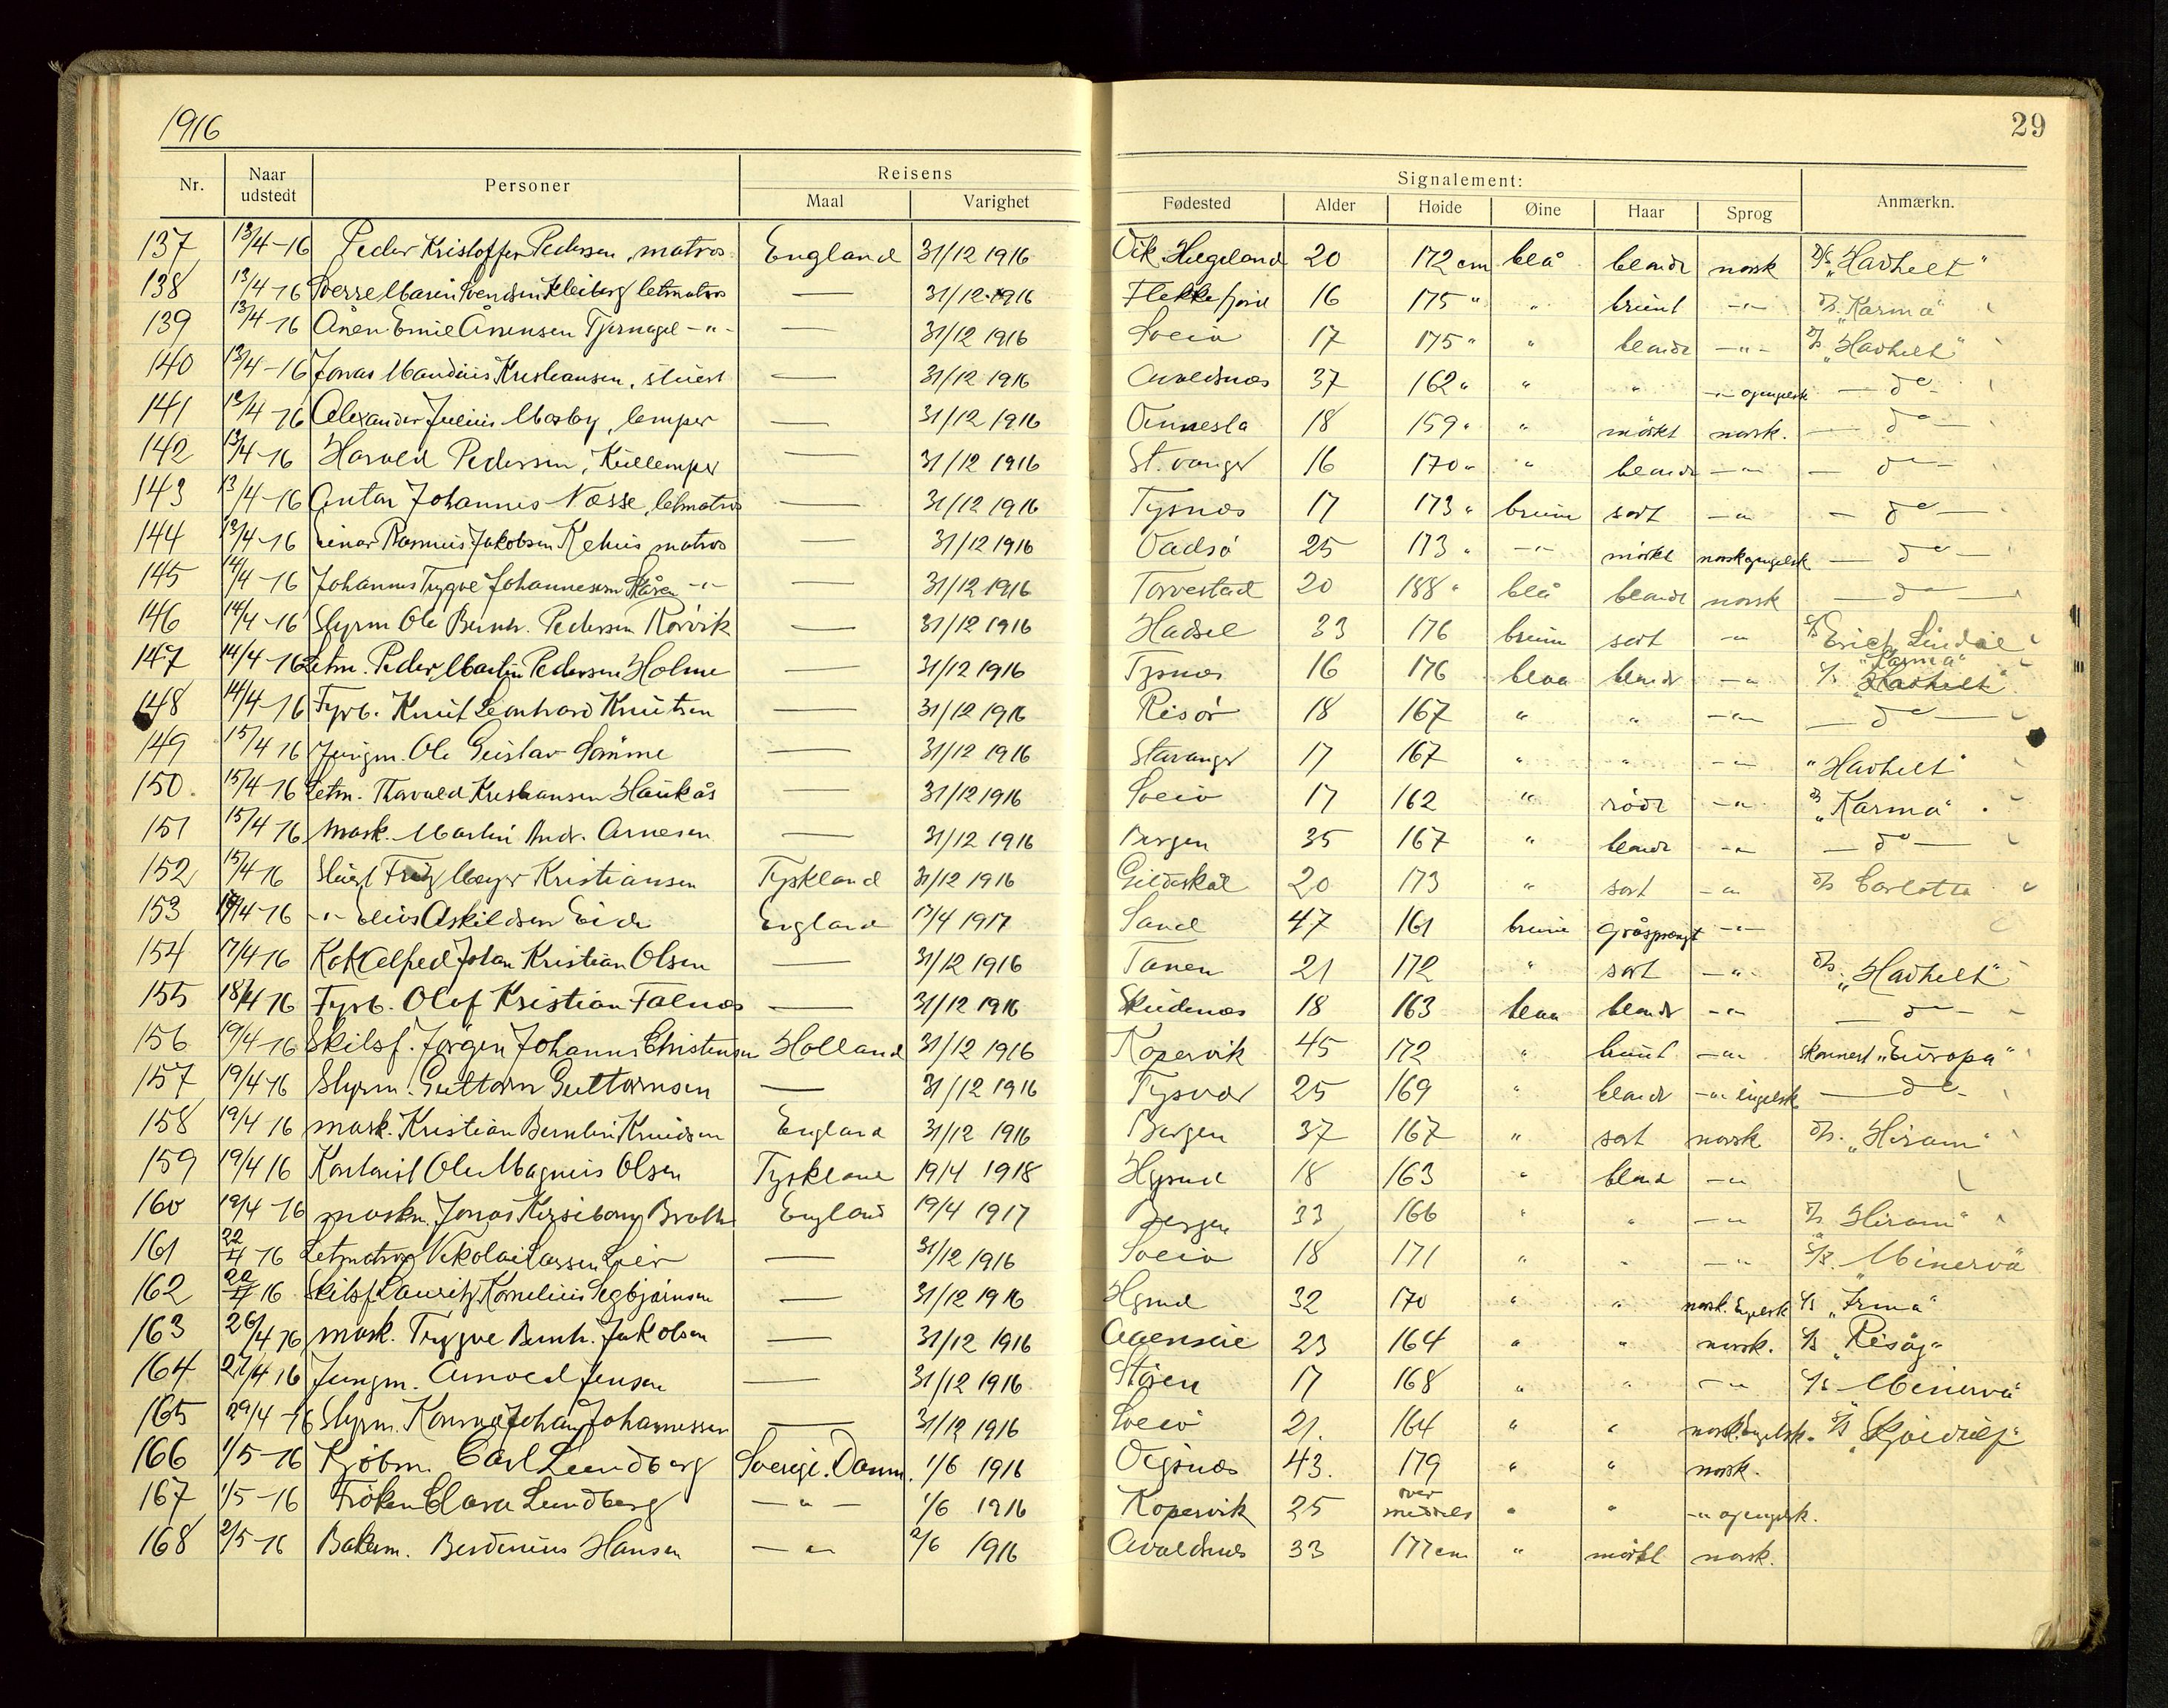 1916
29
Nr. Naar udstedt Personer Reisens Maal Varighet Fødested Signalement: Alder Høide Øine Haar Sprog Anmærkn.
137 13/4-16 Peder Kristoffer Pedersen, matros England 31/12 1916 Vik Hægeland 20 172 cm blå blondt norsk D/S "Havhelt"
138 13/4 16 Sverre Svendsen Kleiberg letmatros — 31/12 1916 Flekkefjord 16 175 " " brunt -"- D/S. "Karma"
139 13/4-16 Ånen Emil Ånensen Tjernagel -"- — 31/12 1916 Sveio 17 175 " " blondt -"- D/S "Havhelt"
140 13/4-16 Jonas Maudius Kristiansen, stuert — 31/12 1916 Avaldsnes 37 162 " " " -"- og engelsk — do -
141 13/4 16 Alexander Julius Mosby, lemper — 31/12 1916 Vennesla 18 159 " " mörkt norsk. — do —
142 13/4-16 Harald Pedersen, Kullemper — 31/12 1916 St.vanger 16 170 " " blondt -"- — do —
143 13/4-16 Anton Johannes Næsse, letmatros — 31/12 1916 Tysnes 17 173 " brune sort -"- — do —
144 13/4-16 Einar Rasmus Jakobsen matros — 31/12 1916 Vadsö 25 173 " -"- mörkt norsk og engelsk — do —
145 14/4-16 Johannes Trygve Johannesen Skåren -"- — 31/12 1916 Torvestad 20 188 " blå blondt norsk — do —
146 14/4-16 Styrm Ole Bernh. Pedersen Rørvik — 31/12 1916 Hadsel 33 176 brune sort -"- S/S Erich Lindöe
147 14/4-16 Letm. Peder Martin Pedersen Holme — 31/12 1916 Tysnes 16 176 blaa blondt -"- S/S "Karma" "Havhelt"
148 14/4-16 Fyrb. Knut Leonhard Knutsen — 31/12 1916 Risör 18 167 " " -"- — do —
149 15/4 16 Jungm. Ole Gustav Sömme — 31/12 1916 Stavanger 17 167 " " -"- "Havhelt"
150. 15/4 16 Letm. Thorvald Kristiansen Haukås — 31/12 1916 Sveio 17 162 " rödt -"- D/S "Karma"
151 15/4 16 Mask. Martin Andr. Arnesen — 31/12 1916 Bergen 35 167 " blondt -"- — do —
152 15/4-16 Stuert Fritz Meyer Kristiansen Tyskland 31/12 1916 Gildeskål 20 173 " sort -"- D/S Carlotta
153 17/4-16 -"- Elius Askildsen Eide England 17/4 1917 Sand 47 161 brune gråsprængt -"-
154 17/4-16 Kok Alfred Johan Kristian Olsen — 31/12 1916 Tanen 21 172 " sort -"- D/S. "Havhelt"
155 18/4 16 Fyrb. Olaf Kristian Falnes — 31/12 1916 Skudenes 18 163 blaa blondt -"- — do —
156 19/4-16 Skibsf. Jørgen Johannes Christensen Holland 31/12 1916 Kopervik 45 172 " brunt -"- skonnert "Europa"
157 19/4-16 Styrm. Guttorm Guttormsen — 31/12 1916 Tysvær 25 169 " blondt -"- engelsk — do -
158 19/4 16 Mask. Kristian Berntin Knudsen England 31/12 1916 Bergen 37 167 " sort norsk D/S. "Hiram"
159 19/4 16 Kontorist Ole Magnus Olsen Tyskland 19/4 1918 Hgsund 18 163 " blond -"-
160 19/4-16 maskn. Jonas England 19/4 1917 Bergen 33 166 " " -"- D/S Hiram"
161 22/4 16 Letmatros Nikolai Larssen Lier — 31/12 1916 Sveio 18 171 " " -"- S/S. Minerva
162 22/4 16 Skibsf Lauritz Kornelius Segbjørnsen — 31/12 1916 Hgsund 32 170 " " norsk. Engelsk S/S "Irma"
163 26/4 16 mask. Trygve Bernh. Jakobsen — 31/12 1916 23 164 " " norsk. S/S "Risöy"
164 27/4 16 Jungm. Arnold Jensen — 31/12 1916 Støren 17 168 " " -"- S/S Minerva"
165 29/4-16 Styrm. Konrad Johan Johannessen — 31/12 1916 Sveio 21. 164 " " norsk. Engelsk. S/S
166 1/5-16 Kjöbm. Carl Lundberg Sverige. Danm. 1/6 1916 Vigsnes 43. 179 " " norsk.
167 1/5-16 Fröken Clara Lundberg — " — 1/6 1916 Kopervik 25 over middels " " -"- og engelsk.
168 2/5-16 Bakerm. Berdinius Hansen — " — 2/6 1916 Avaldsnes 33 177 cm " mörkt norsk.